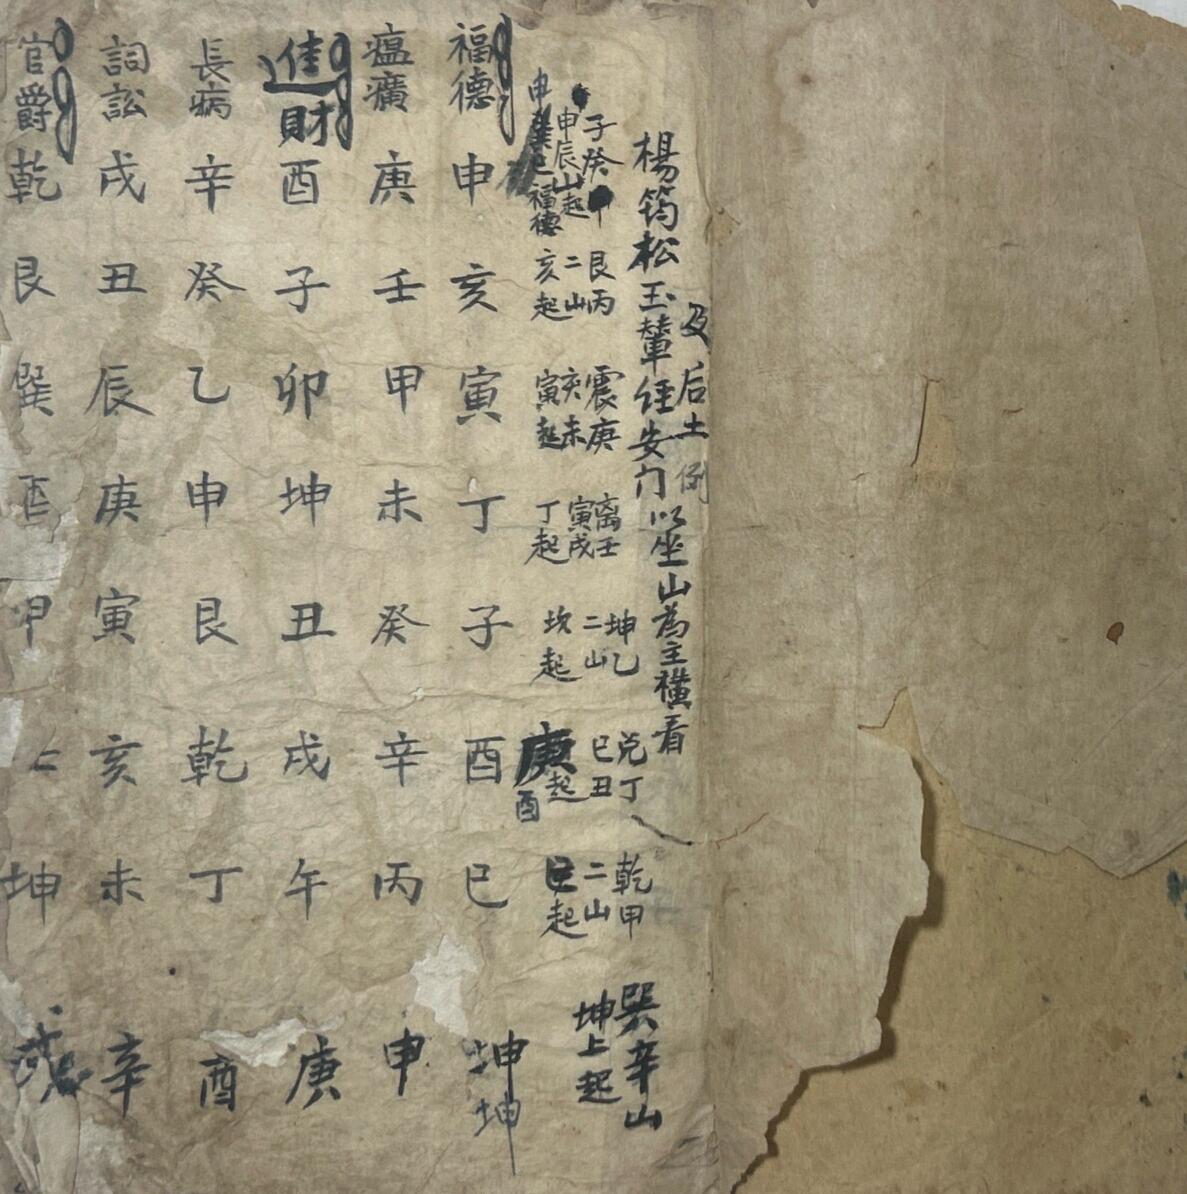 楊筠松玉輦經安门以坐山為主橫看
及后土例
子癸申
申辰山起
申
福德
艮丙
二山
亥起
震庚
亥未
寅起
离壬
寅戌
丁起
坤乙
二山
坎起
兑丁
巳丑
庚起
酉
乾甲
二山
巳起
巽辛山
坤上起
福德 申 亥 寅 丁 子 酉 巳 坤 坤
瘟癀 庚 壬 甲 未 癸 辛 丙 申
進財 酉 子 卯 坤 丑 戌 午 庚
長病 辛 癸 乙 申 艮 乾 丁 酉
詞訟 戌 丑 辰 庚 寅 亥 未 辛
官爵 乾 艮 巽 酉 甲 坤